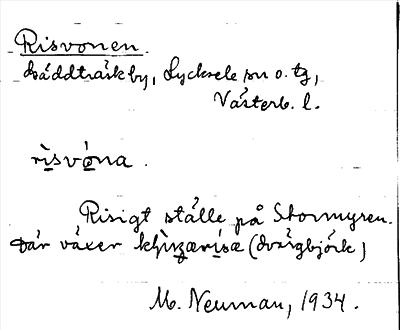 Risvonen.
Råddträsk by, Lycksele sn o. tg,
Västerb. l.
rìsvóna.
Risigt ställe på Stormyren.
Där växer (dvärgbjörk)
M. Neuman, 1934.